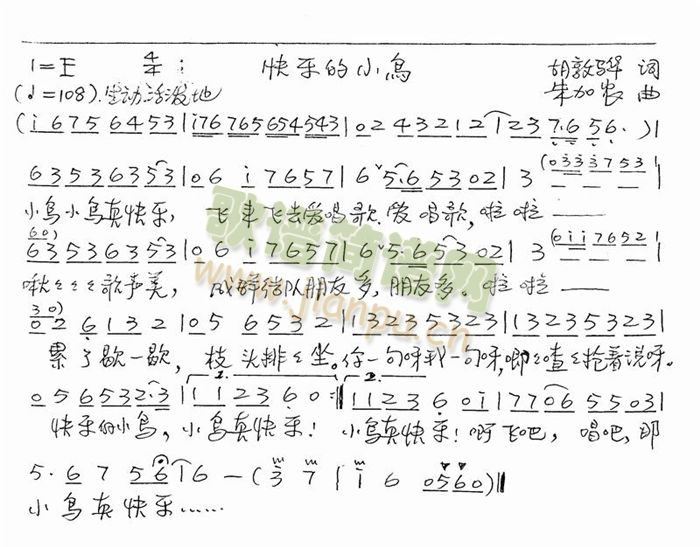 1=E 4/4 快乐的小鸟 胡敦骅 词
(♩=108) 生动活泼地 朱加农 曲
(i 6 7 5 6 4 5 3 | i 7 6 7 6 5 6 5 4 5 4 3 | 0 2 4 3 2 1 2 1 2 3 7·6 5 6· ) |
6 3 5 3 6 3 5 3 | 0 6 i 7 6 5 7 | 6 ˅ 5·6 5 3 0 2 | 3 — — (0 3 3 3 7 5 3) |
小鸟小鸟真快乐, 飞来飞去爱唱歌,爱唱歌,啦啦——
6 3 5 3 6 3 5 3 | 0 6 i 7 6 5 7 | 6 ˅ 5·6 5 3 0 2 | 3 — — (0 i i 7 6 5 2 |
6 0)
啾 歌声美, 成群结队朋友多,朋友多。啦啦——
3 0)
0 2 6 1 3 2 | 0 5 6 5 3 2 | 1 3 2 3 5 3 2 3 | 1 3 2 3 5 3 2 3 |
累了歇一歇, 枝头排 坐。你一句呀我一句呀,唧 喳 抢着说呀。
0 5 6 5 3 2·3 | 1. 1 1 2 3 6 0 :‖ 2. 1 1 2 3 6 0 i | 7 7 0 6 5 5 0 3 |
快乐的小鸟, 小鸟真快乐! 小鸟真快乐!啊飞吧, 唱吧,那
5· 6 7 5 6 i 6 — (3 7 | i 6 0 5 6 0) ‖
小鸟真快乐……
歌谱简谱网
www.jianpu.cn